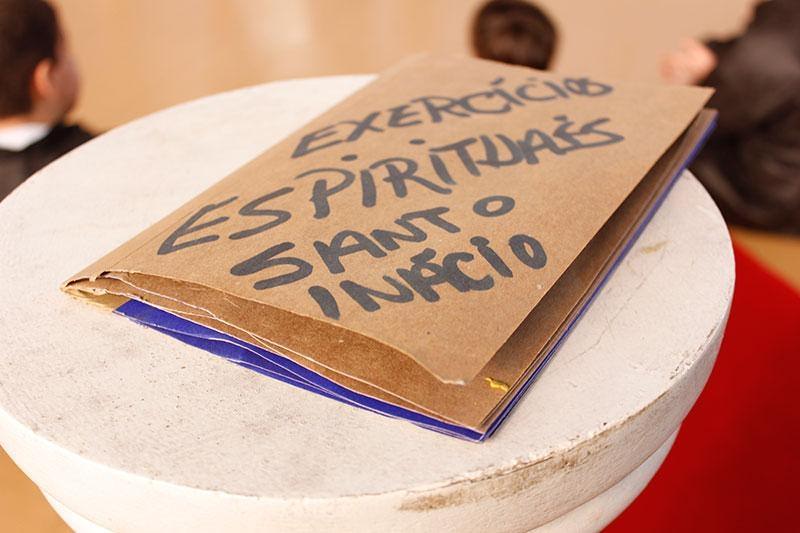 EXERCÍCIOS
ESPIRITUAIS
SANTO
INÁCIO